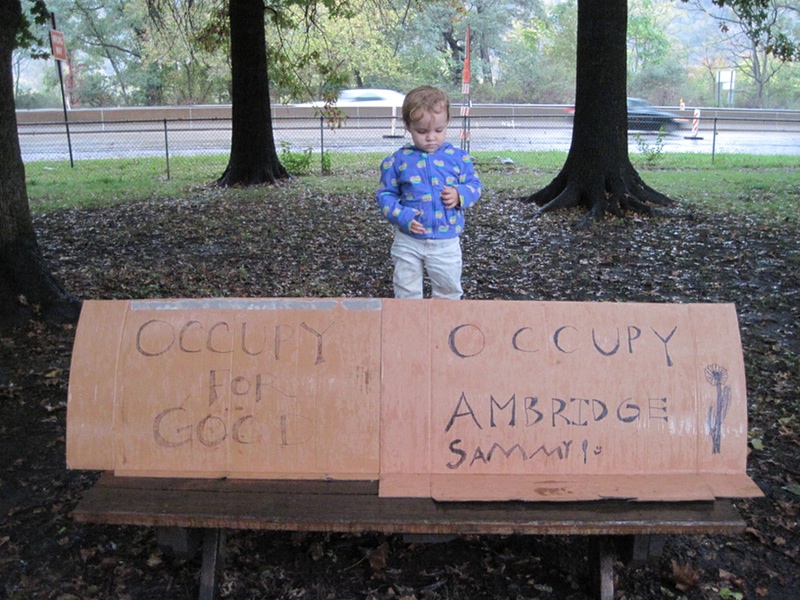 OCCUPY
FOR
GOCI
OCCUPY
AMBRIDGE
SAMMY!